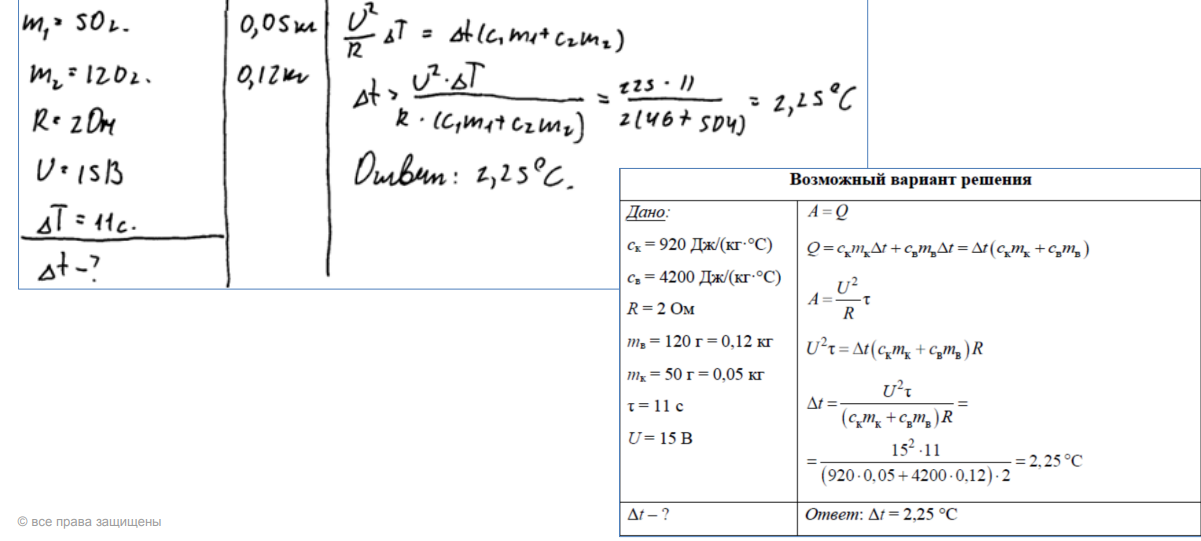 m₁ = 50 г. 0,05 кг U²/R ΔT = Δt(c₁m₁ + c₂m₂)
m₂ = 120 г. 0,12 кг Δt = U²·ΔT / R·(c₁m₁ + c₂m₂) = 225·11 / 2(46 + 504) = 2,25°C
R = 2 Ом
U = 15 В Ответ: 2,25°C.
ΔT = 11 с.
Δt – ?
Возможный вариант решения
Дано:
cк = 920 Дж/(кг·°С)
cв = 4200 Дж/(кг·°С)
R = 2 Ом
mв = 120 г = 0,12 кг
mк = 50 г = 0,05 кг
τ = 11 с
U = 15 В
A = Q
Q = cкmкΔt + cвmвΔt = Δt(cкmк + cвmв)
A = U²/R τ
U²τ = Δt(cкmк + cвmв)R
Δt = U²τ / (cкmк + cвmв)R =
= 15²·11 / (920·0,05 + 4200·0,12)·2 = 2,25 °С
Δt – ? Ответ: Δt = 2,25 °С
© все права защищены